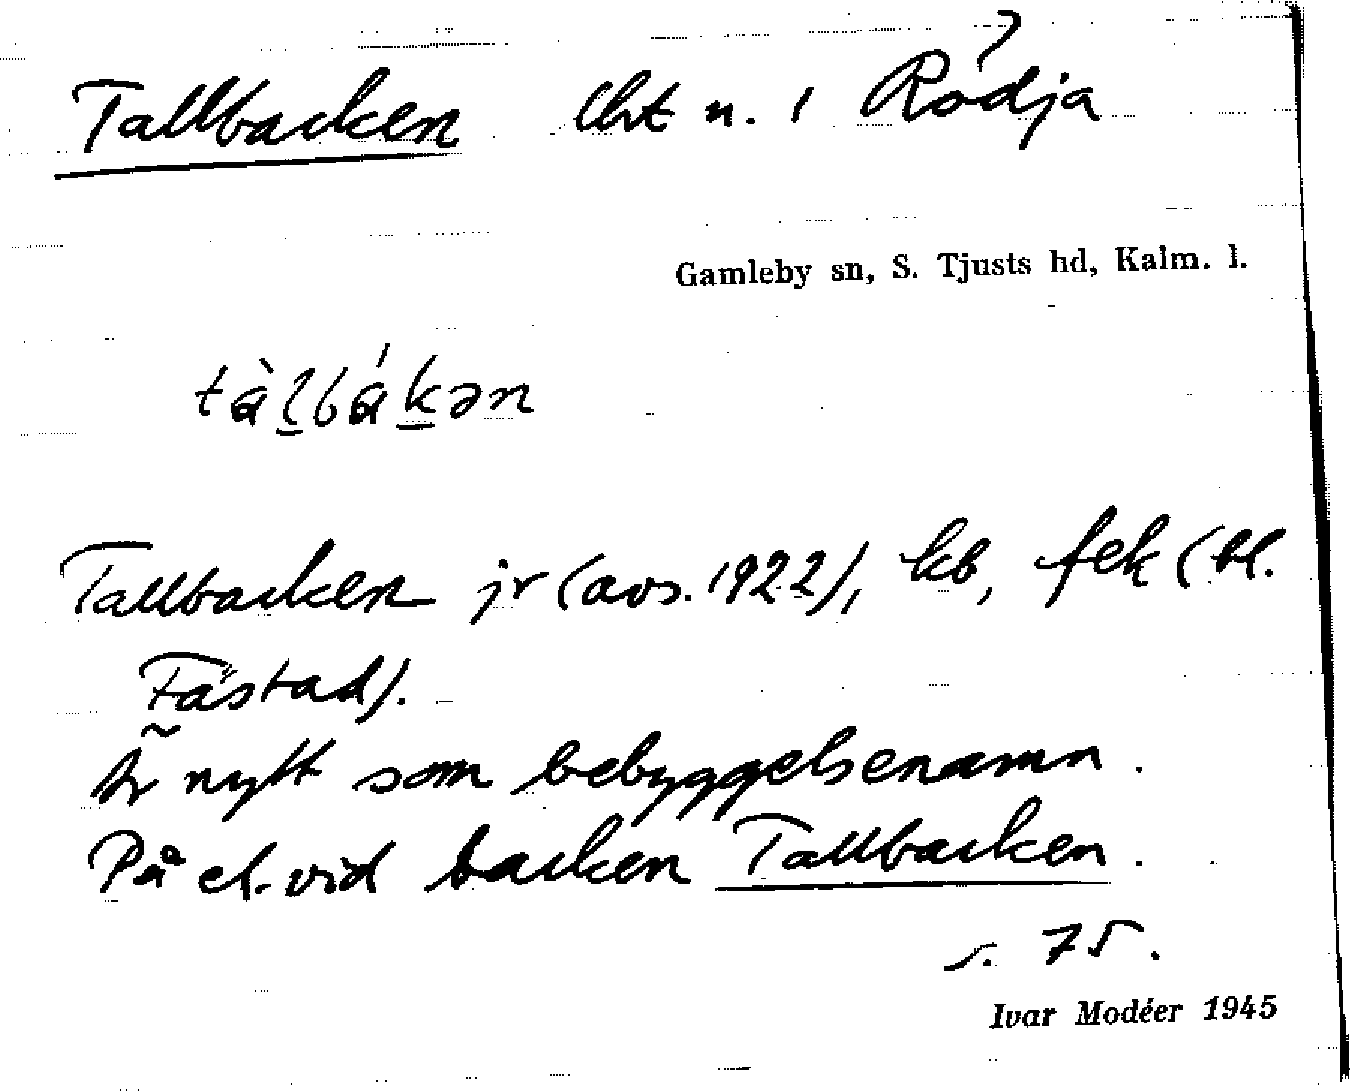 Tallbacken lht n. i Rödja
Gamleby sn, S. Tjusts hd, Kalm. l.
tàlbákən
Tallbacken jr (avs. 1922), kb, fek (bl.
Fästad).
Är nytt som bebyggelsenamn.
På el. vid backen Tallbacken.
s. 75.
Ivar Modéer 1945